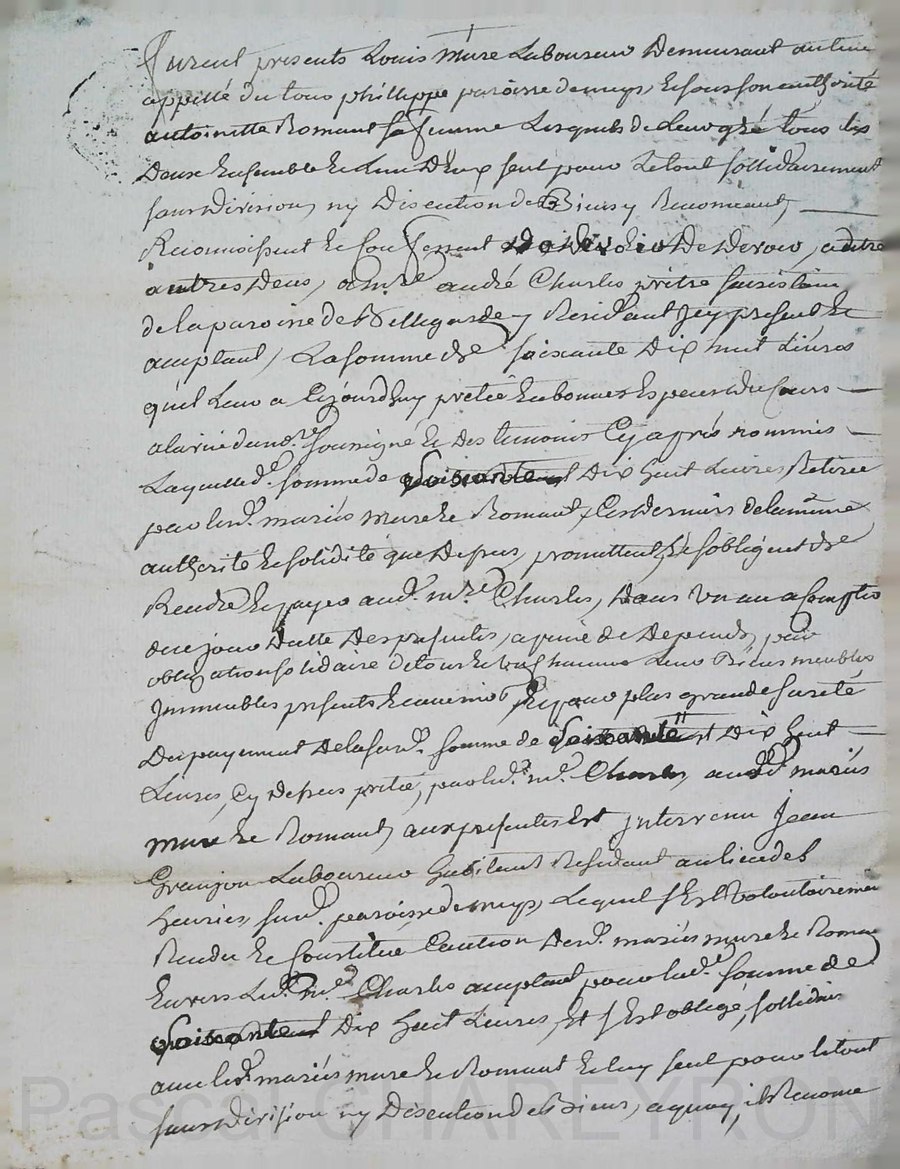 furent presents Louis Mure Laboureur Demeurant au lieu
appellé du tour phillippe paroisse de mys, Et sous son authorité
antoinette Romant sa femme Lesquels de Leur gré tous les
Deux Ensemble Et L'un D'Eux seul pour Le tout sollidairement
sans Division, ny Discution de Biens y Renonceant,
Reconnoissent Et Confessent Devoir, a dite
autres Deus, a mre andré Charles prêtre sacristain
de la paroisse de Bellegarde y Residant Icy present Et
acceptant, La somme de soixante Dix huit Livres
qu'il Leur a Cejourd'huy pretée En bonnes Especes du Cours
a la vüe du nore soussigné Et des temoins Cy après nommés
Laquelle de. somme de soixante Dix huit Livres Retirée
par lesd. mariés mure Et Romant, Ces Derniers de la même
authorité Et solidité que Dessus, promettent Et s'obligent de
Rendre Et payer aud. mre Charles, Dans Un an a Compter
de ce jour Datte Des presentes, a peine de Depends, par
obligation solidaire de tous Et Uns Chacuns Leurs Biens meubles
Immeubles presents Et avenirs, Et pour plus grande sureté
Du payement De la susd. somme de soixante Dix huit
Livres, Cy Dessus pretée, par led. mre Charles, auxd. mariés
mure Et Romant, aux presentes Est intervenu Jean
Granjon Laboureur habitant Residant au lieu des
susd. paroisse de mys, Lequel s'Est volontairemen
Rendu Et Constitué Caution Desd. mariés mure Et Roman
Envers Led. mre Charles acceptant pour lad. somme de
soixante Dix huit Livres, Et s'Est obligé, sollidaire
avec lesd. mariés mure Et Romant Et luy seul pour le tout
sans Division ny Discution de Biens, a quoy il Renonce
Pascal CHAREYRON